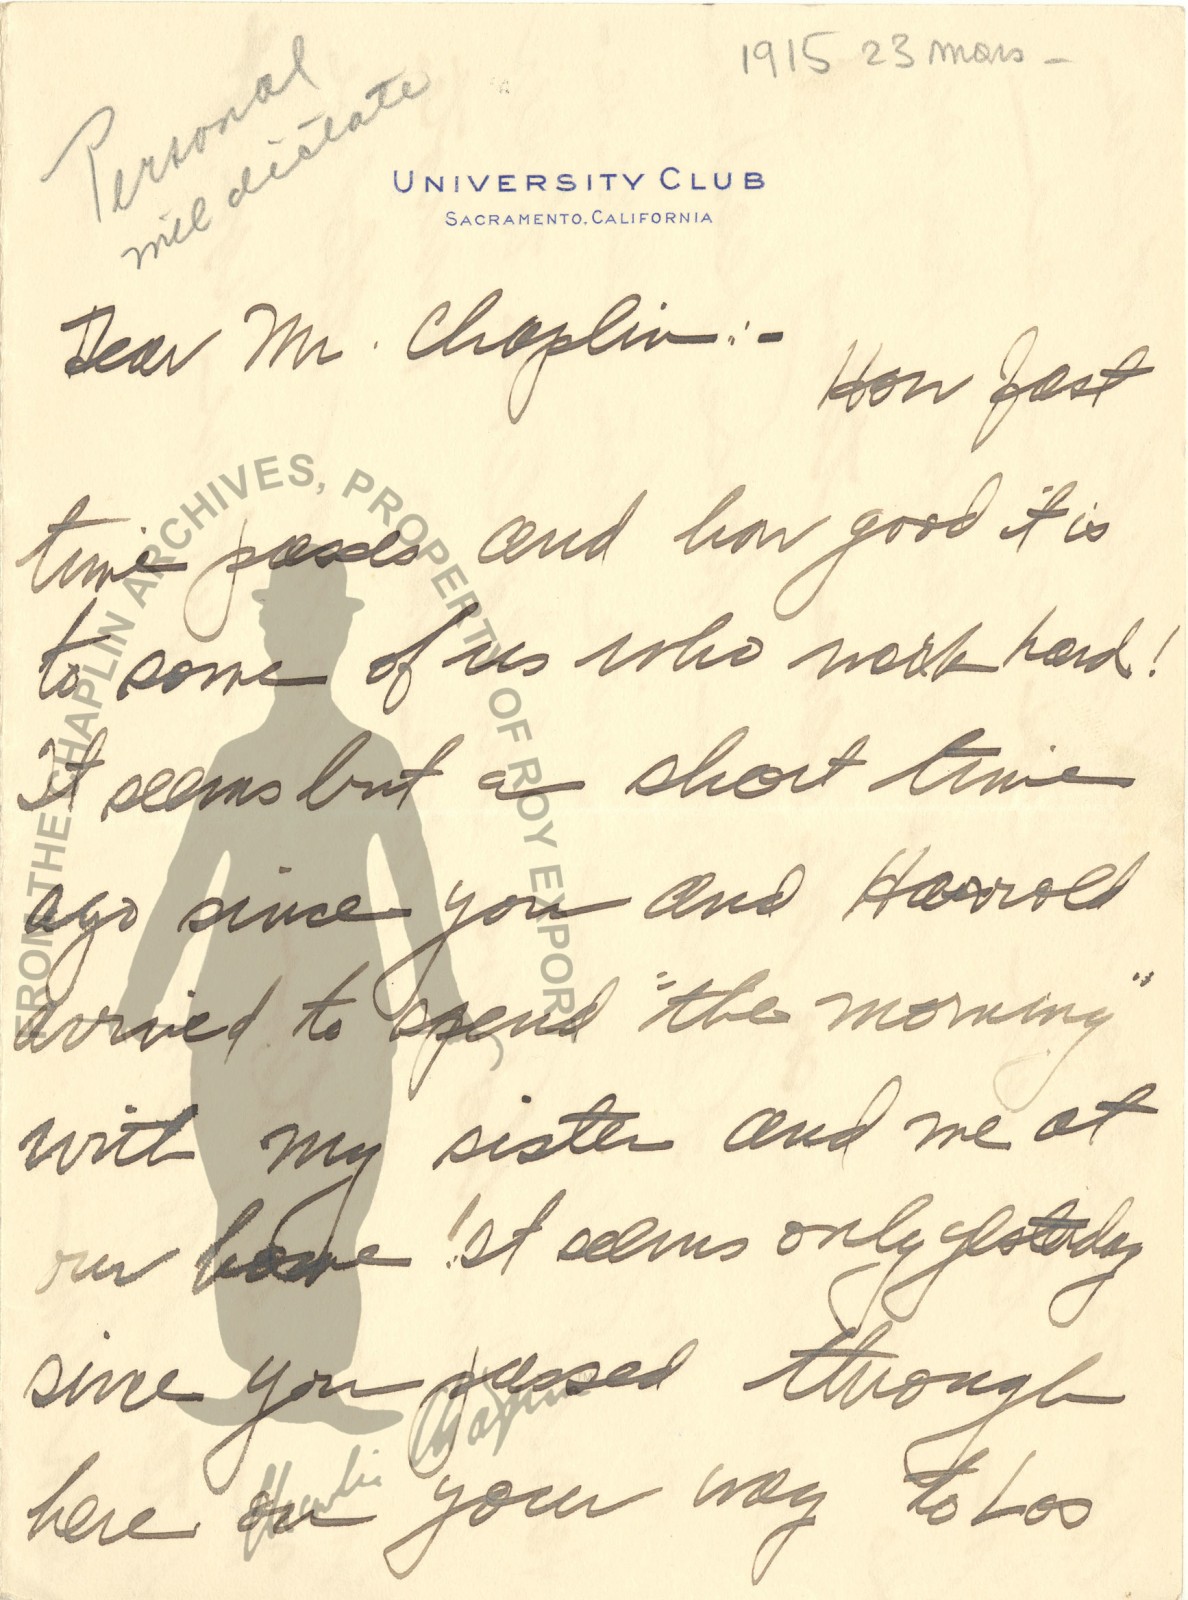 1915 23 mars -
Personal
will dictate
UNIVERSITY CLUB
SACRAMENTO, CALIFORNIA
Dear Mr. Chaplin:-
How fast
time passes and how good it is
to some of us who work hard!
It seems but a short time
ago since you and Harrold
arrived to spend "the morning"
with my sister and me at
our home! It seems only yesterday
since you passed through
here on your way to Los
FROM THE CHAPLIN ARCHIVES, PROPERTY OF ROY EXPORT
Charlie Chaplin